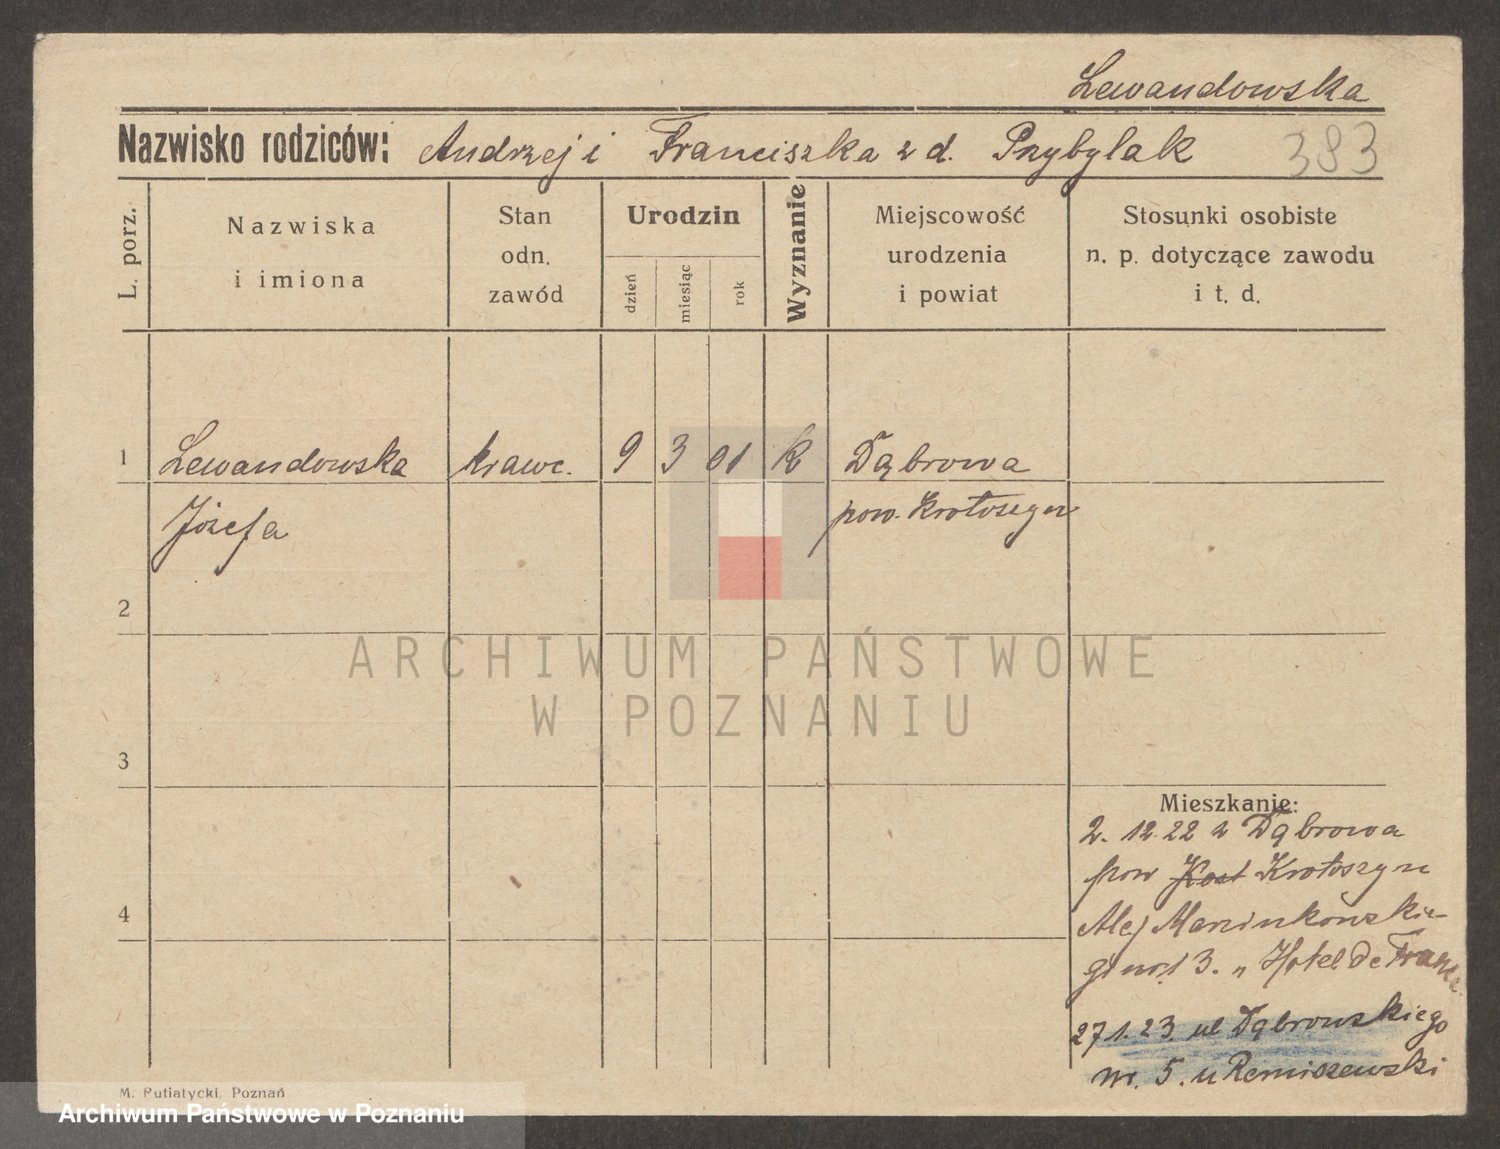 Lewandowska
Nazwisko rodziców: Andrzej i Franciszka z d. Przybylak 383
L. porz.
Nazwiska
i imiona
Stan
odn.
zawód
Urodzin
dzień
miesiąc
rok
Wyznanie
Miejscowość
urodzenia
i powiat
Stosunki osobiste
n. p. dotyczące zawodu
i t. d.
1 Lewandowska krawc. 9 3 01 k Dąbrowa
Józefa pow. Krotoszyn
2
3
4
ARCHIWUM PAŃSTWOWE
W POZNANIU
Mieszkanie:
2. 12. 22 z Dąbrowa
pow Kost Krotoszyn
Alej Marcinkowskie-
go 3. „ Hotel De France
27 1. 23. ul Dąbrowskiego
nr. 5. u Remiszewski
M. Putiatycki, Poznań
Archiwum Państwowe w Poznaniu